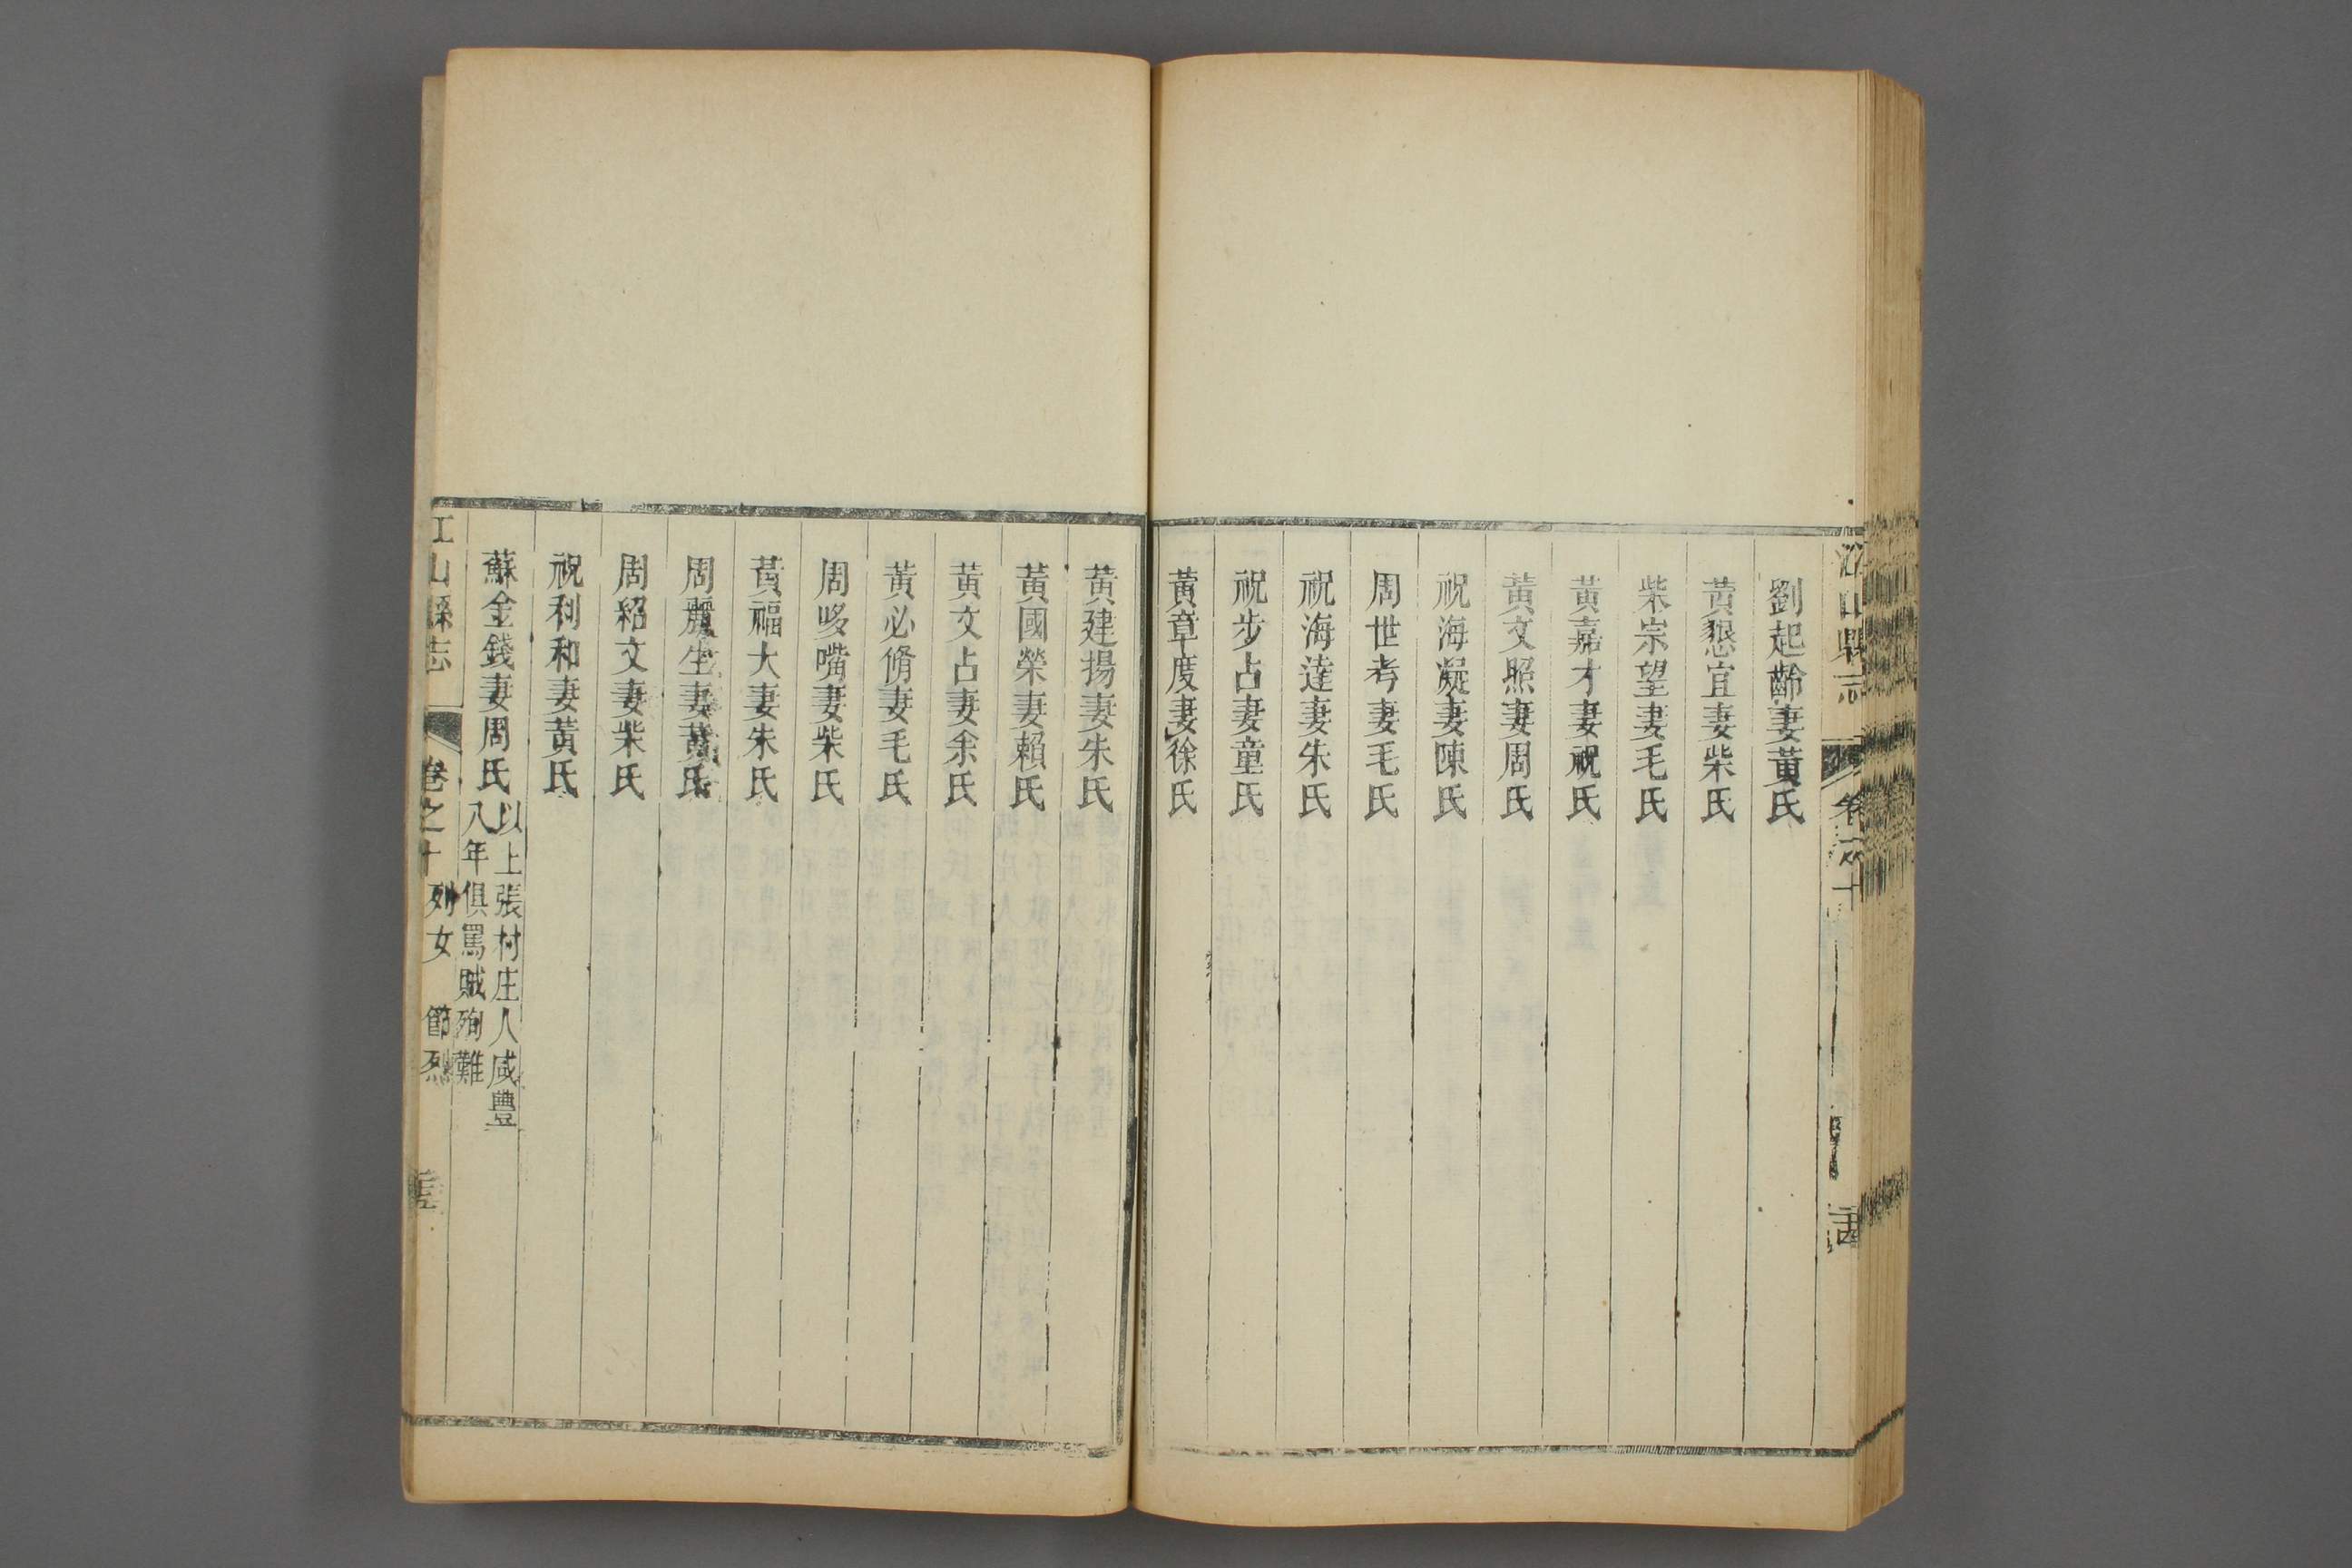 劉起齡妻黃氏
黃懇宜妻柴氏
柴宗望妻毛氏
黃嘉才妻祝氏
黃文照妻周氏
祝海凝妻陳氏
周世考妻毛氏
祝海達妻朱氏
祝步占妻童氏
黃章度妻徐氏
黃建揚妻朱氏
黃國榮妻賴氏
黃文占妻余氏
黃必脩妻毛氏
周哆嘴妻柴氏
黃福大妻朱氏
周麗生妻黃氏
周紹文妻柴氏
祝利和妻黃氏
蘇金錢妻周氏
以上張村庄人咸豐
八年俱罵賊殉難
江山縣志
卷之十
列女
節烈